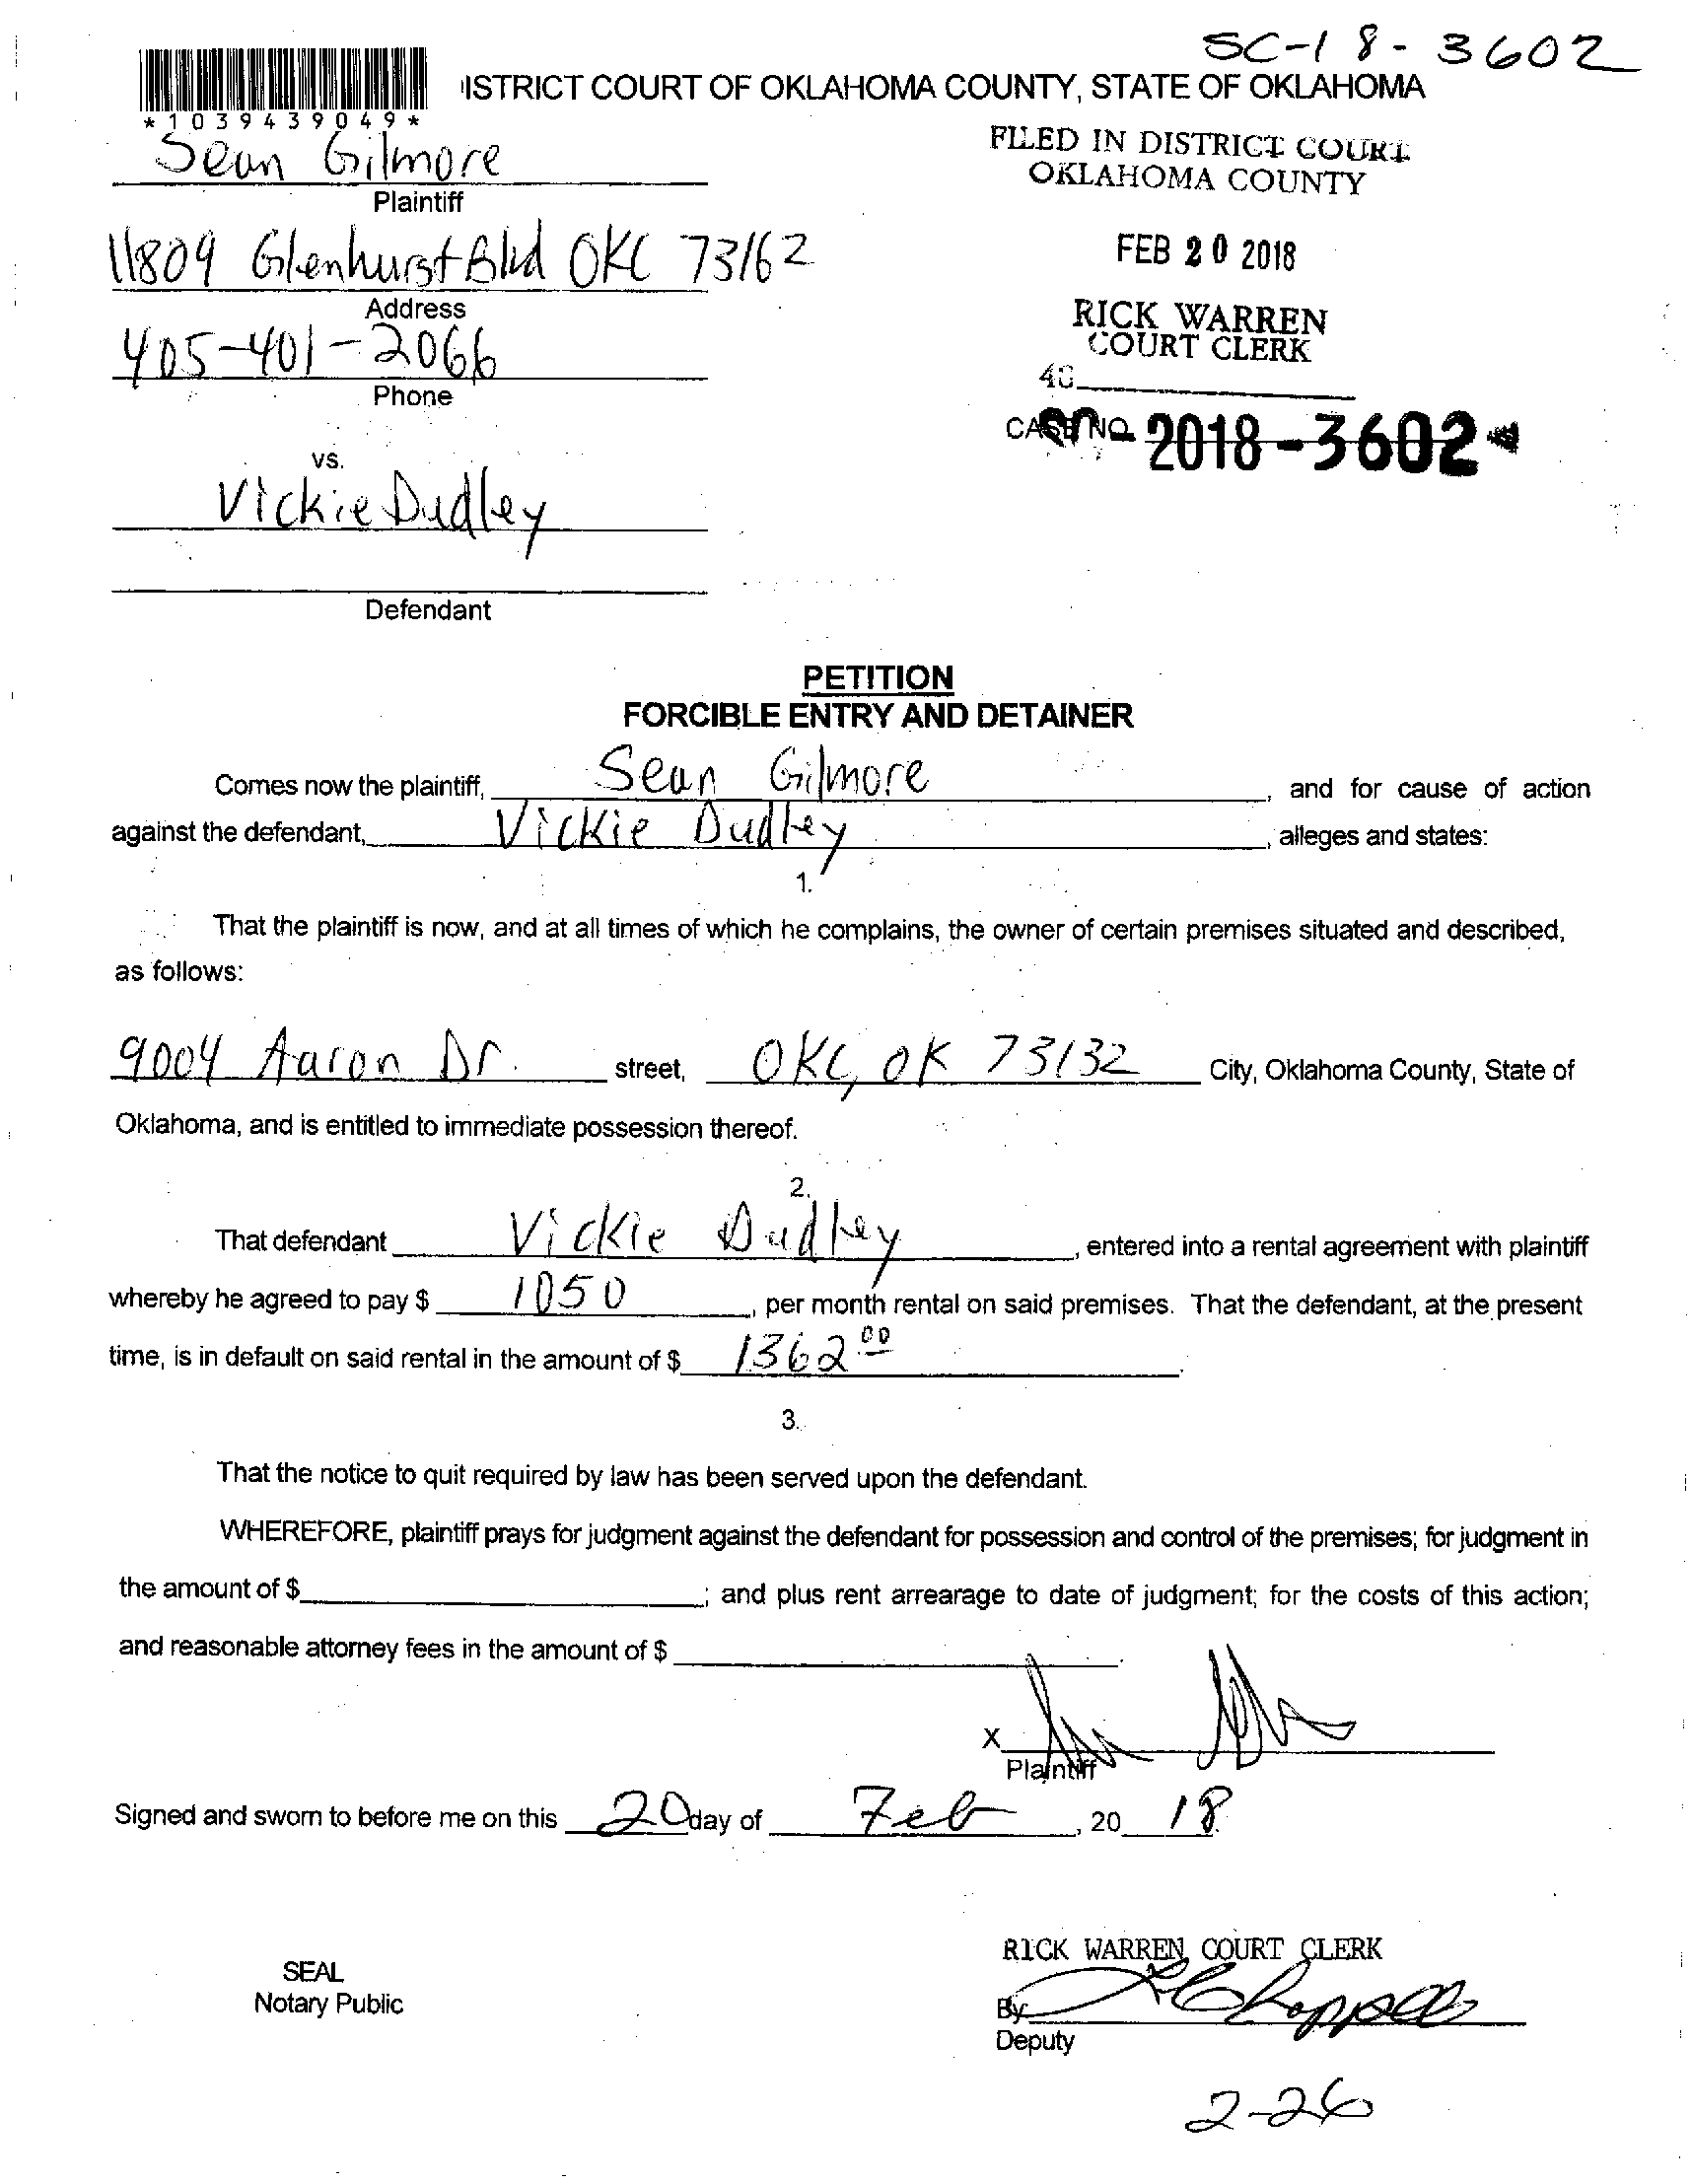 SC-18-3602
ISTRICT COURT OF OKLAHOMA COUNTY, STATE OF OKLAHOMA
*1039439049*
Sean Gilmore
Plaintiff
11809 Glenhurst Blvd OKC 73162
Address
405-401-2066
Phone
FILED IN DISTRICT COURT
OKLAHOMA COUNTY
FEB 20 2018
RICK WARREN
COURT CLERK
48
CASE NO. 2018-3602
vs.
Vickie Dudley
Defendant
PETITION
FORCIBLE ENTRY AND DETAINER
Comes now the plaintiff, Sean Gilmore, and for cause of action
against the defendant, Vickie Dudley, alleges and states:
1.
That the plaintiff is now, and at all times of which he complains, the owner of certain premises situated and described,
as follows:
9004 Aaron Dr. street, OKC, OK 73132 City, Oklahoma County, State of
Oklahoma, and is entitled to immediate possession thereof.
2.
That defendant Vickie Dudley, entered into a rental agreement with plaintiff
whereby he agreed to pay $ 1050, per month rental on said premises. That the defendant, at the present
time, is in default on said rental in the amount of $ 1362.00.
3.
That the notice to quit required by law has been served upon the defendant.
WHEREFORE, plaintiff prays for judgment against the defendant for possession and control of the premises; for judgment in
the amount of $ ; and plus rent arrearage to date of judgment; for the costs of this action;
and reasonable attorney fees in the amount of $ .
X
Plaintiff
Signed and sworn to before me on this 20 day of Feb, 20 18.
SEAL
Notary Public
RICK WARREN, COURT CLERK
By K Chappell
Deputy
2-26